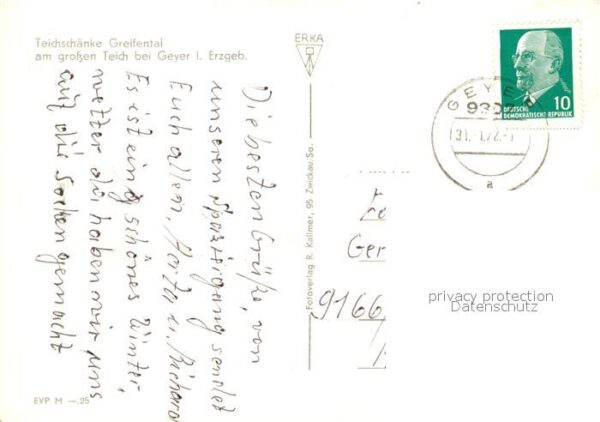 Teichschänke Greifental
am großen Teich bei Geyer i. Erzgeb.
Die besten Grüße, von
unseren Spaziergang sendet
Euch allen, Herta u. Richard
Es ist ein schönes Winter,
wetter da haben wir uns
auf die Socken gemacht
EVP M —.25
ERKA
Fotoverlag R. Kallmer, 95 Zwickau Sa.
DEUTSCHE
DEMOKRATISCHE REPUBLIK
10
GEYER
930
31.-1.72.-
a
Ger
9166
privacy protection
Datenschutz